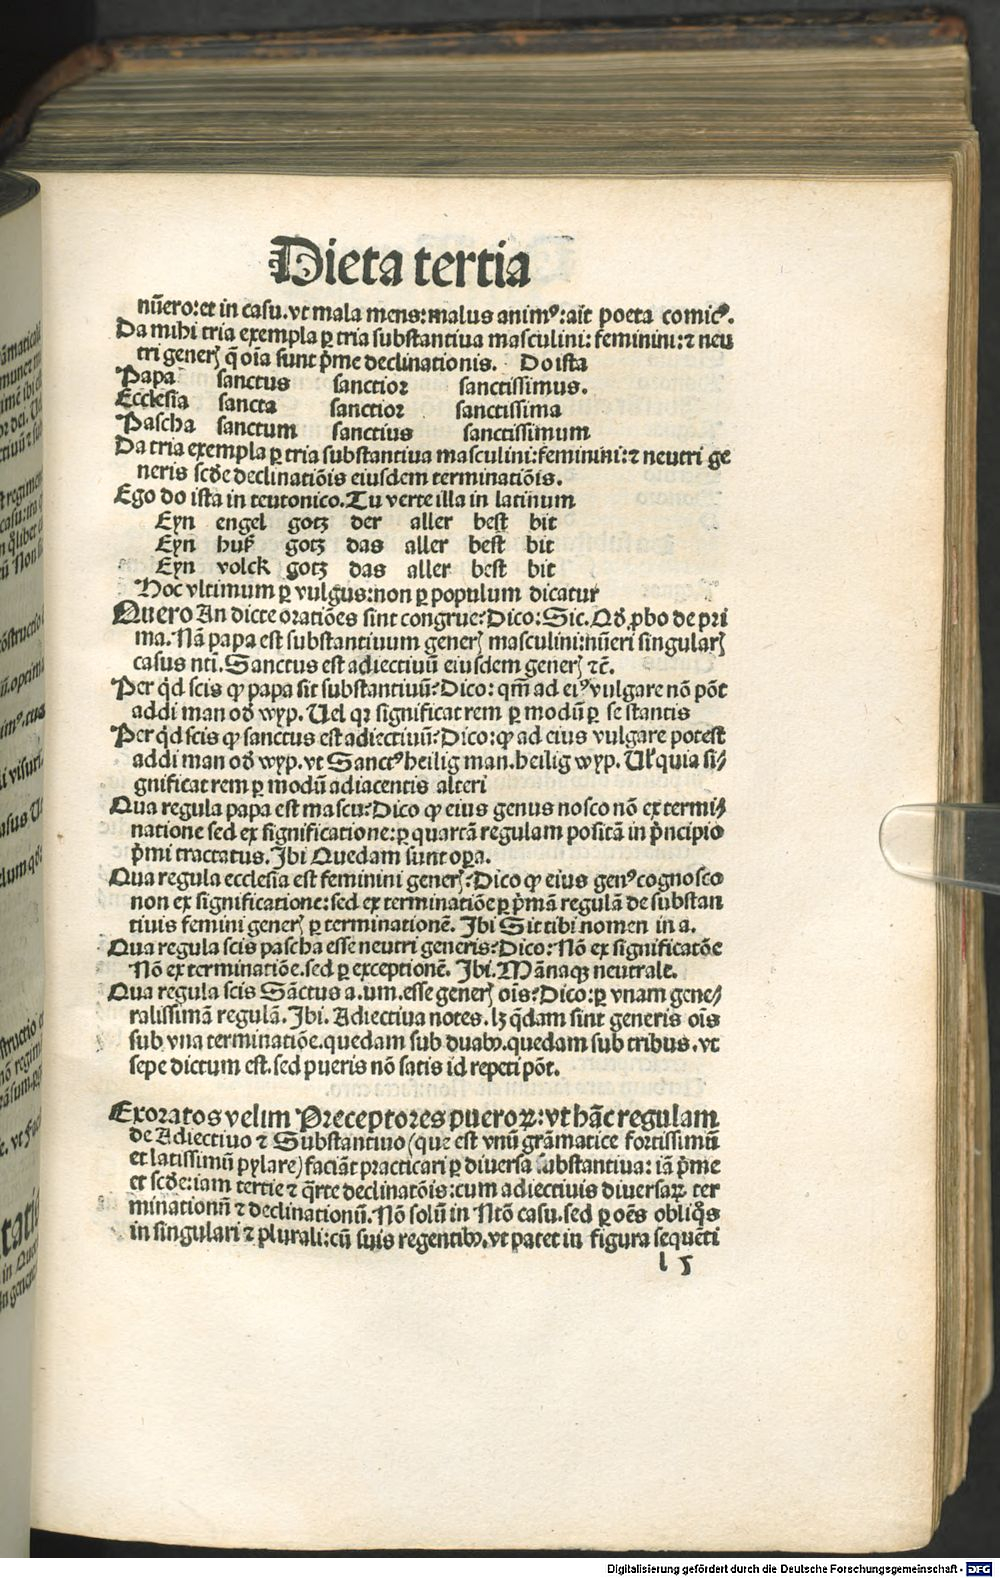 Dieta tertia
nūero: et in casu. vt mala mens: malus animꝰ: ait poeta comicꝰ.
Da mihi tria exempla ꝑ tria substantiua masculini: feminini: ⁊ neu
tri generꝭ q̄ oīa sunt p̄me declinationis. Do ista
Papa sanctus sanctior sanctissimus.
Ecclesia sancta sanctior sanctissima
Pascha sanctum sanctius sanctissimum
Da tria exempla ꝑ tria substantiua masculini: feminini: ⁊ neutri ge
neris scḋe declinatiōis eiusdem terminatiōis.
Ego do ista in teutonico. Tu verte illa in latinum
Eyn engel gotz der aller best bit
Eyn huß gotz das aller best bit
Eyn volck gotz das aller best bit
Hoc vltimum ꝑ vulgus: non ꝑ populum dicatur
Quero An dicte oratiōes sint congrue? Dico: Sic. Qḋ ꝓbo de pri
ma. Nā papa est substantiuum generꝭ masculini: nūeri singularꝭ
casus nti. Sanctus est adiectiuū eiusdem generꝭ ⁊c̄.
Per qḋ scis ꝙ papa sit substantiuū? Dico: qm̄ ad eiꝰ vulgare nō pōt
addi man oḋ wyp. Uel qꝛ significat rem ꝑ modū ꝑ se stantis
Per qḋ scis ꝙ sanctus est adiectiuū? Dico: ꝙ ad eius vulgare potest
addi man oḋ wyp. vt Sanctꝰ heilig man. heilig wyp. Ul̄ quia si⸗
gnificat rem ꝑ modū adiacentis alteri
Qua regula papa est mascu? Dico ꝙ eius genus nosco nō ex termi⸗
natione sed ex significatione: ꝑ quartā regulam positā in p̄ncipio
p̄mi tractatus. Ibi Quedam sunt oꝑa.
Qua regula ecclesia est feminini generꝭ? Dico ꝙ eius genꝰ cognosco
non ex significatione: sed ex terminatiōe ꝑ p̄mā regulā de substan
tiuis femini generꝭ ꝑ terminationē. Ibi Sit tibi nomen in a.
Qua regula scis pascha esse neutri generis? Dico: Nō ex significatōe
Nō ex terminatiōe. sed ꝑ exceptionē. Ibi. Mānaqꝫ neutrale.
Qua regula scis Sāctus a. um. esse generꝭ oīs? Dico: ꝑ vnam gene⸗
ralissimā regulā. Ibi. Adiectiua notes. lꝫ q̄dam sint generis oīs
sub vna terminatiōe. quedam sub duabꝰ. quedam sub tribus. vt
sepe dictum est. sed pueris nō satis id repeti pōt.
Exoratos velim Preceptores pueroꝝ: vt hāc regulam
de Adiectiuo ⁊ Substantiuo (que est vnū grāmatice fortissimū
et latissimū pylare) faciāt practicari ꝑ diuersa substantiua: iā p̄me
et scḋe: iam tertie ⁊ q̄rte declinatōis: cum adiectiuis diuersaꝝ ter
minationū ⁊ declinationū. Nō solū in Ntō casu. sed ꝑ oēs obliq̄s
in singulari ⁊ plurali: cū suis regentibꝰ. vt patet in figura sequēti
l 5
Digitalisierung gefördert durch die Deutsche Forschungsgemeinschaft - DFG